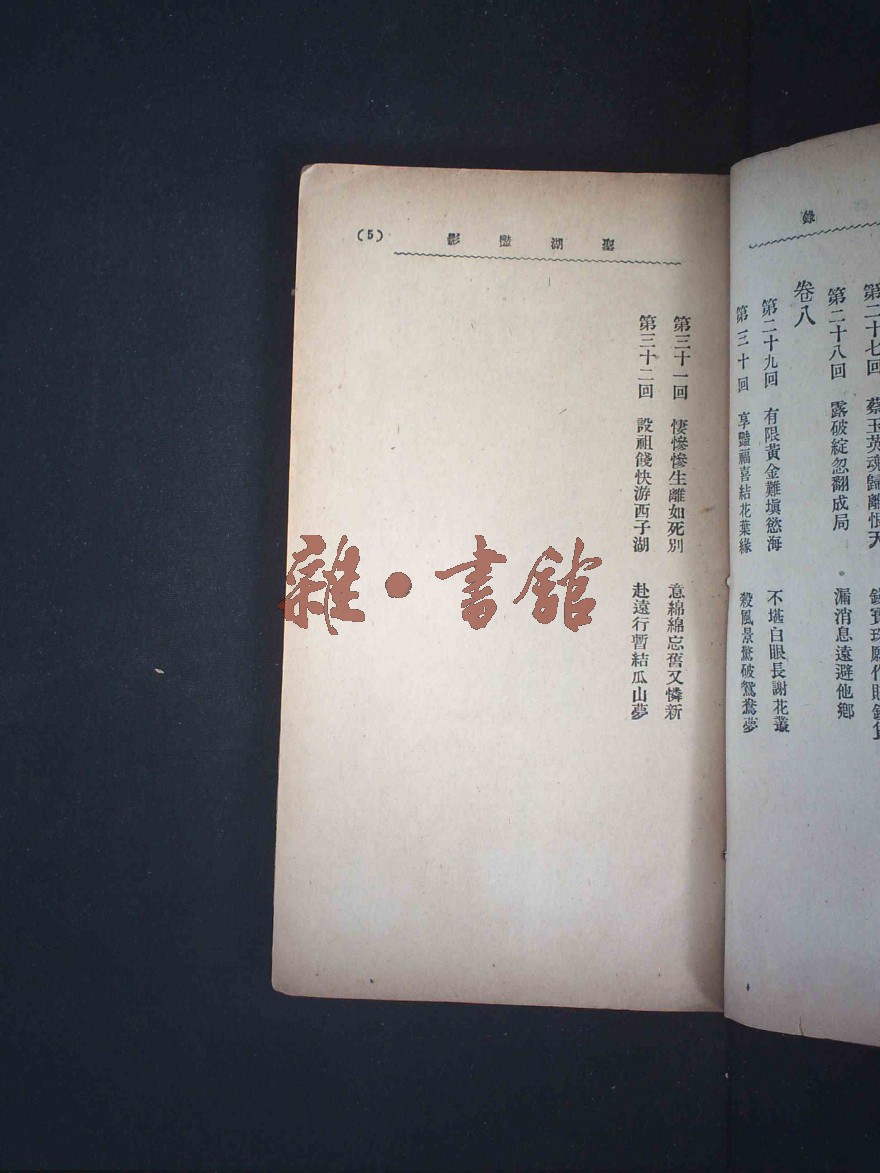 錄
第二十七回 蔡玉英魂歸離恨天
第二十八回 露破綻忽翻成局 漏消息遠避他鄉
卷八
第二十九回 有限黃金難塡慾海 不堪白眼長謝花叢
第三十回 享豔福喜結花葉緣 殺風景驚破鴛鴦夢
聖湖豔影
(5)
第三十一回 悽慘慘生離如死別 意綿綿忘舊又憐新
第三十二回 設祖餞快游西子湖 赴遠行暫結瓜山夢
雜·書館